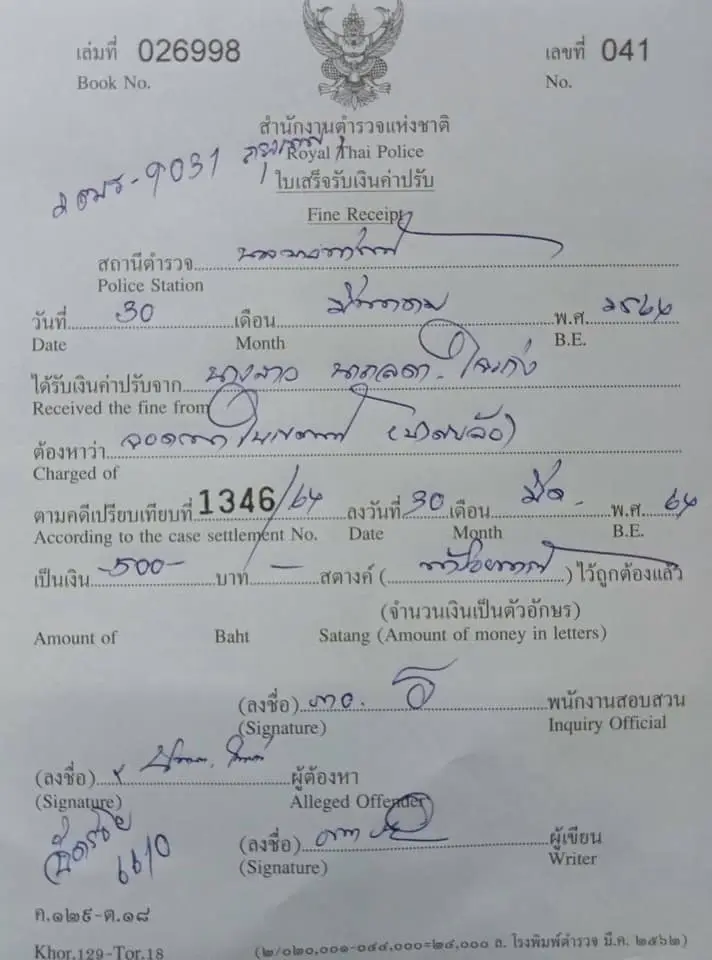 เล่มที่ 026998 เลขที่ 041
Book No. No.
สำนักงานตำรวจแห่งชาติ
Royal Thai Police
9031
ใบเสร็จรับเงินค่าปรับ
Fine Receipt
สถานีตำรวจ
Police Station
วันที่ 30 เดือน มีนาคม พ.ศ. 2564
Date Month B.E.
ได้รับเงินค่าปรับจาก นางสาว
Received the fine from
ต้องหาว่า จอดรถในเขตห้าม
Charged of
ตามคดีเปรียบเทียบที่ 1346/64 ลงวันที่ 30 เดือน มีค. พ.ศ. 64
According to the case settlement No. Date Month B.E.
เป็นเงิน -500- บาท - สตางค์ (ห้าร้อยบาท) ไว้ถูกต้องแล้ว
(จำนวนเงินเป็นตัวอักษร)
Amount of Baht Satang (Amount of money in letters)
(ลงชื่อ) พนักงานสอบสวน
(Signature) Inquiry Official
(ลงชื่อ) ผู้ต้องหา
(Signature) Alleged Offender
(ลงชื่อ) ผู้เขียน
(Signature) Writer
ค.๑๒๙-ต.๑๘
Khor.129-Tor.18 (๒/๐๒๐,๐๐๑-๐๔๔,๐๐๐=๒๔,๐๐๐ ล. โรงพิมพ์ตำรวจ มี.ค. ๒๕๖๒)